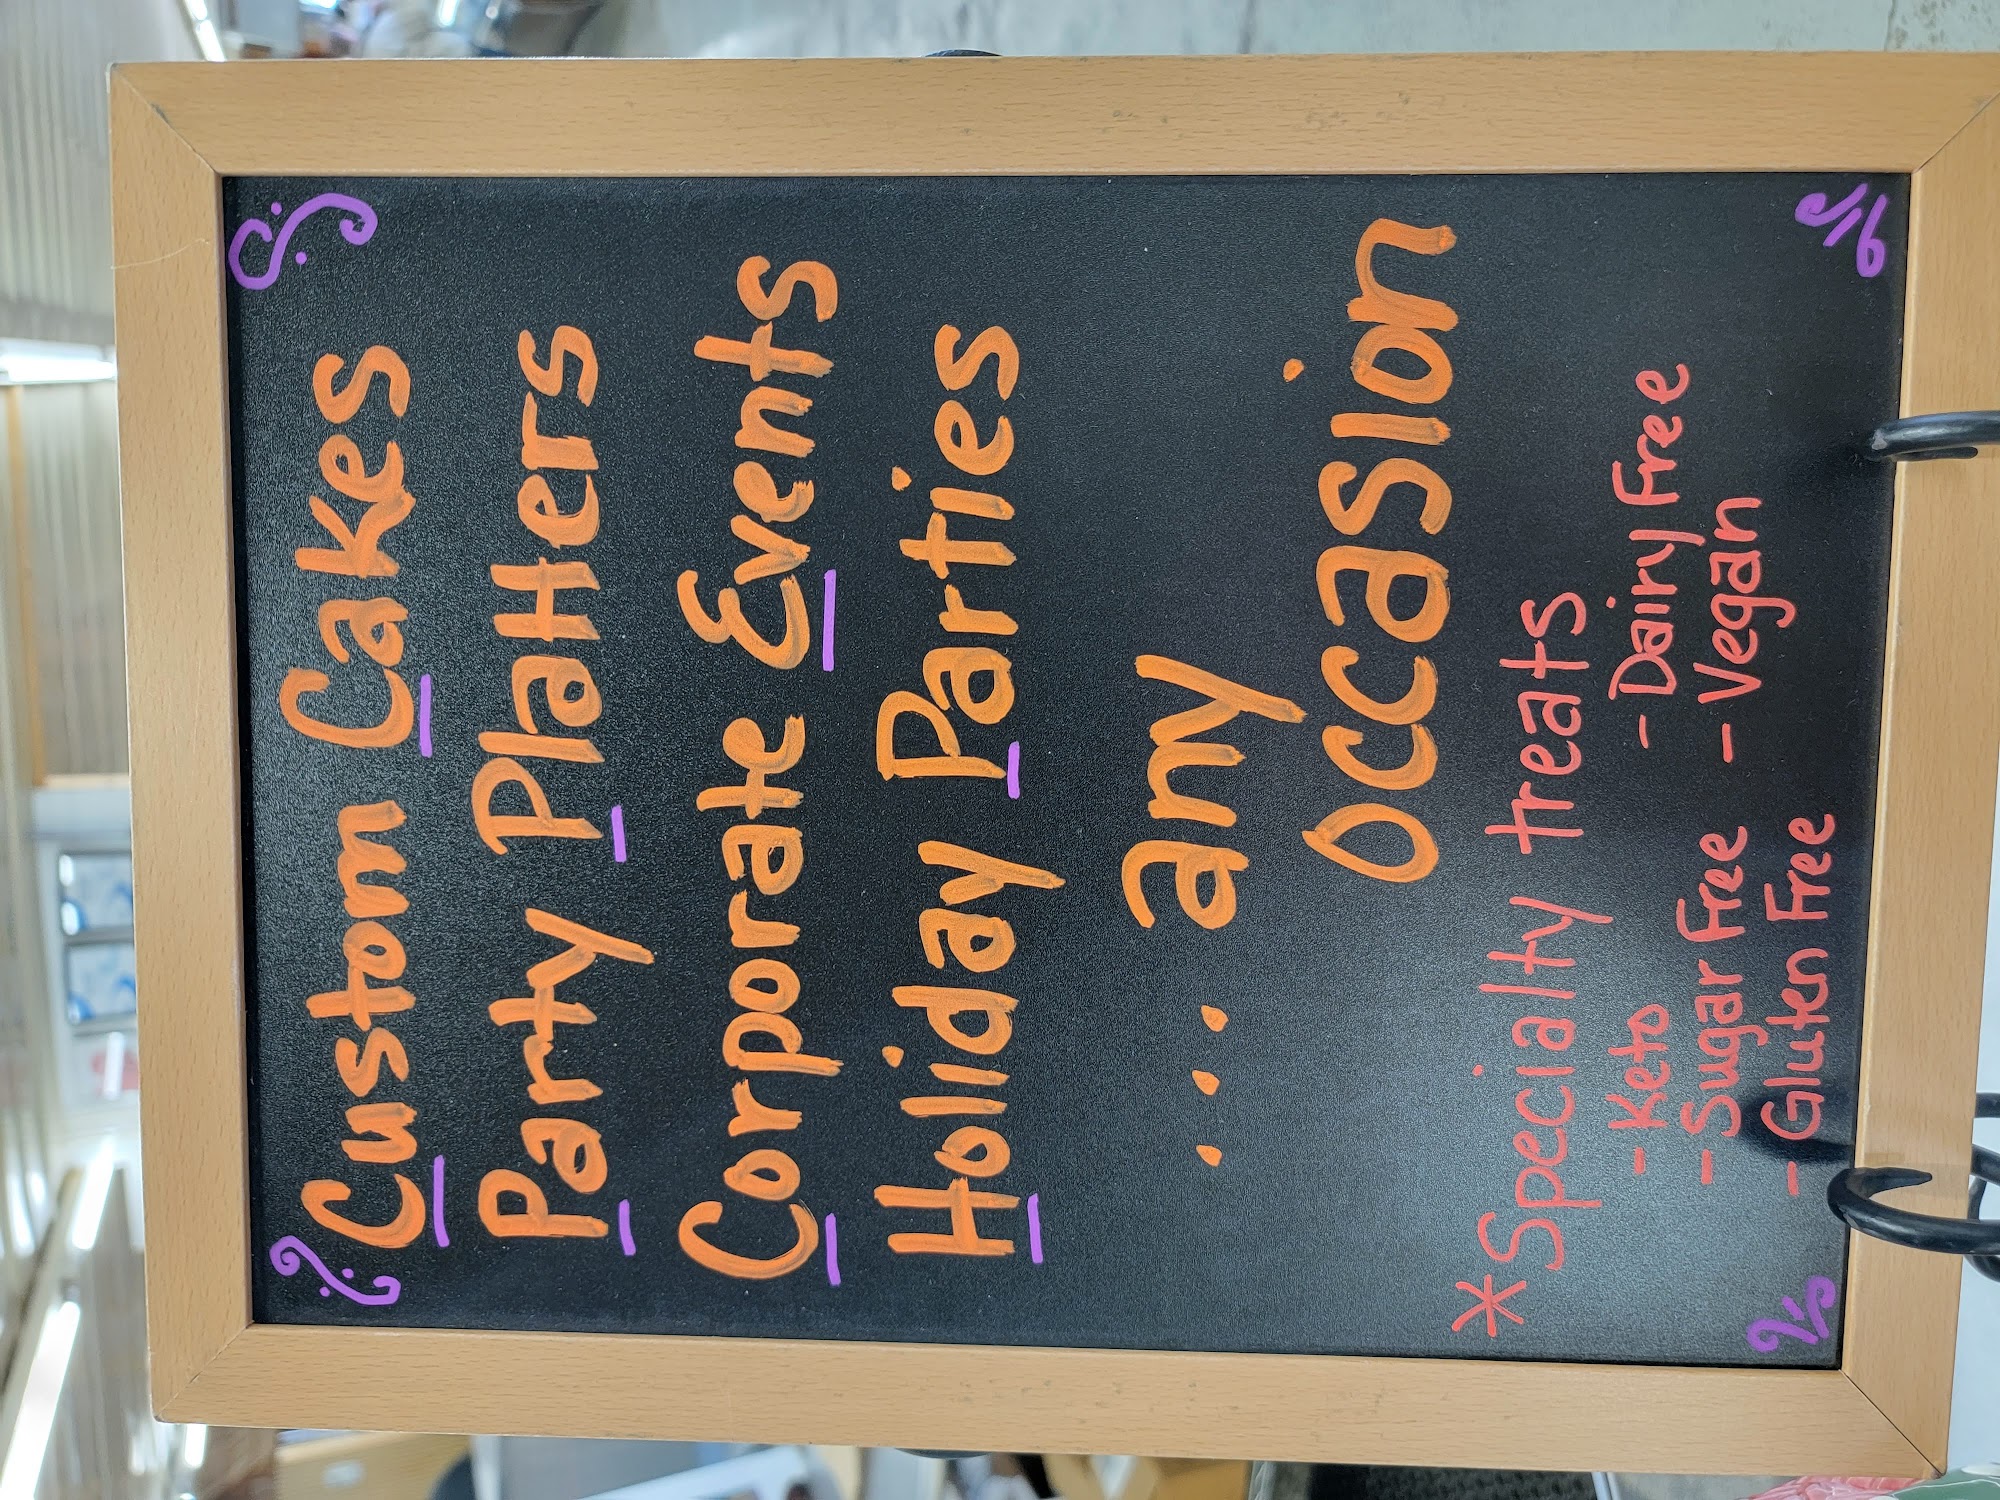 Custom Cakes
Party Platters
Corporate Events
Holiday Parties
... any
occasion
*Specialty treats
-Keto -Dairy Free
-Sugar Free -Vegan
-Gluten Free